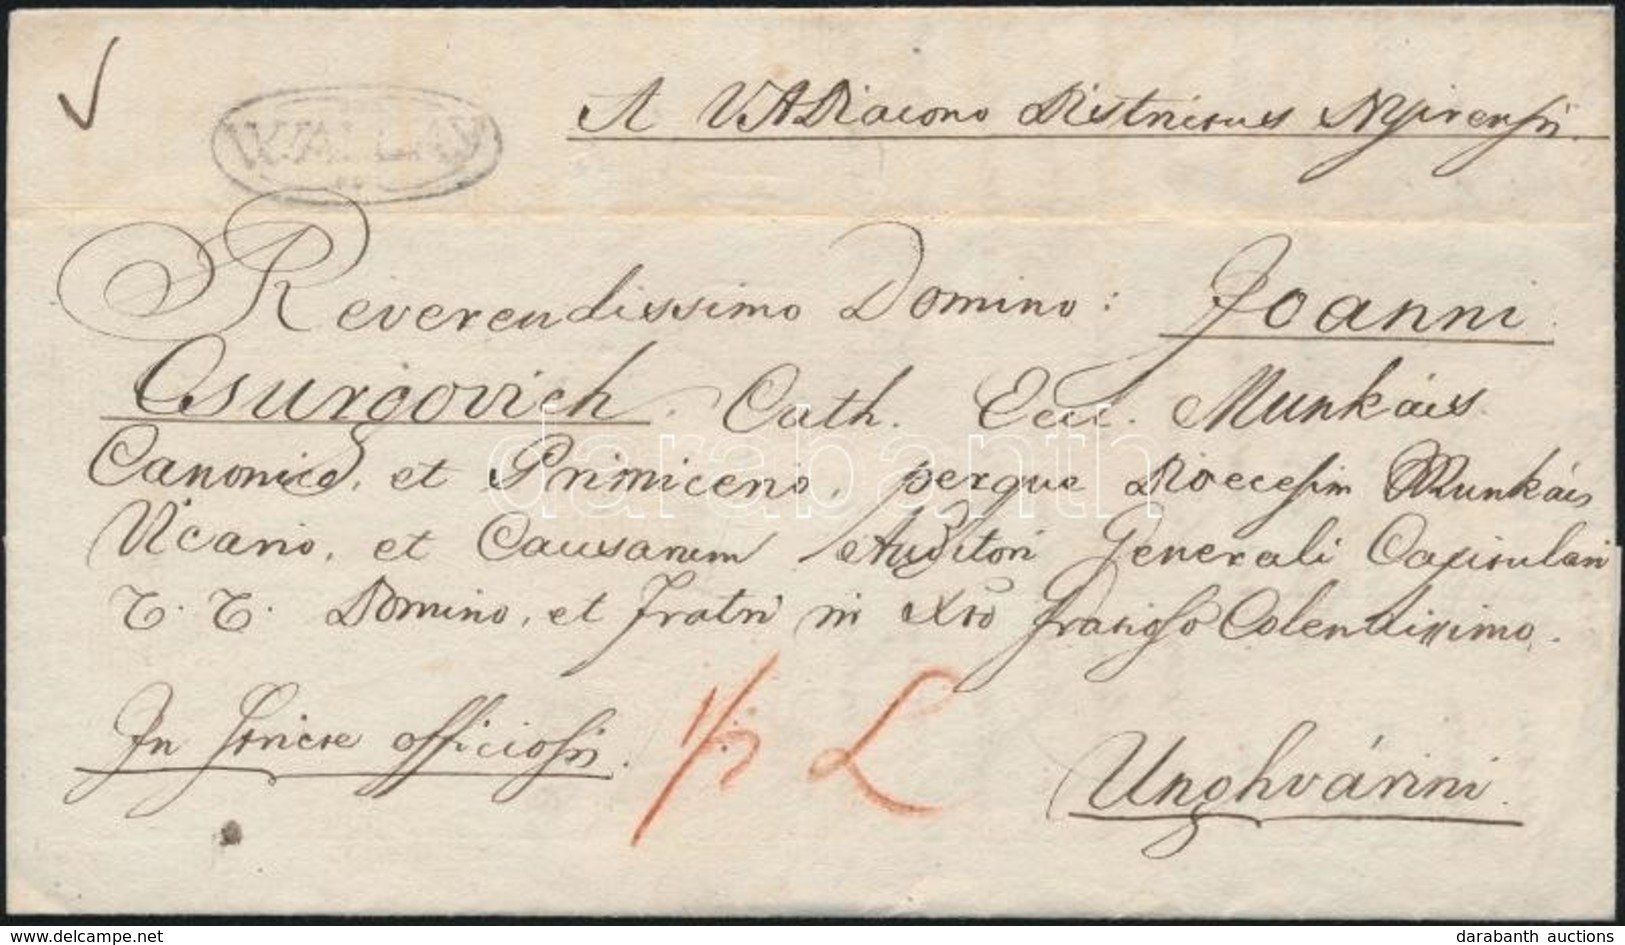 W.ALLAY
A VADiacono Districtus Nyirensis.
Reverendissimo Domino: Joanni
Csurgovich. Cath. Eccl. Munkács.
Canonico, et Primicerio, perque Dioecesim Munkács
Vicario, et Causarum Auditori Generali Capitulari
T. T. Domino, et Fratri in Xto Colendissimo.
In officiosis.
1/2 L
Unghvárini.
darabanth
www.delcampe.net
darabanth auctions